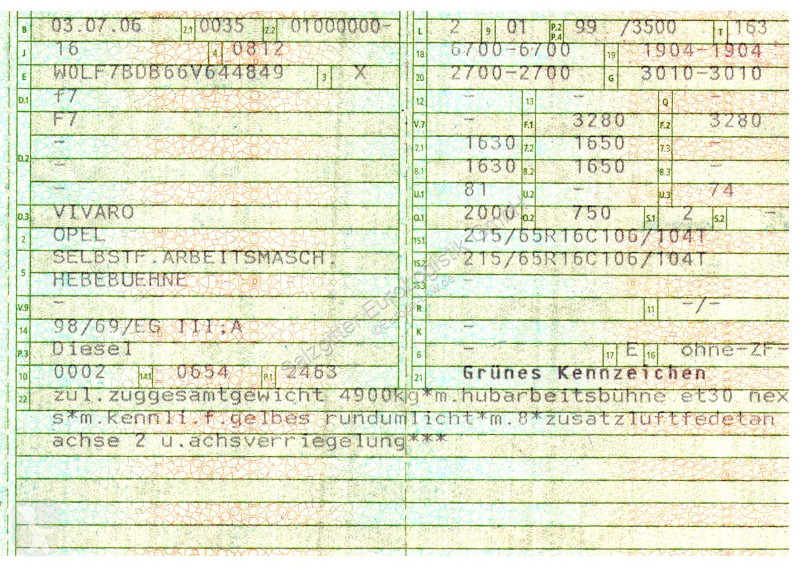 B 03.07.06 2.1 0035 2.2 01000000- L 2 9 01 P.2 P.4 99 /3500 T 163
J 16 4 0812 18 6700-6700 19 1904-1904
E W0LF7BDB66V644849 3 X 20 2700-2700 G 3010-3010
D.1 f7 12 - 13 - Q -
F7 V.7 - F.1 3280 F.2 3280
D.2 - 7.1 1630 7.2 1650 7.3 -
- 8.1 1630 8.2 1650 8.3 -
- U.1 81 U.2 - U.3 74
D.3 VIVARO O.1 2000 O.2 750 S.1 2 S.2 -
2 OPEL 15.1 215/65R16C106/104T
5 SELBSTF.ARBEITSMASCH. 15.2 215/65R16C106/104T
HEBEBUEHNE 15.3 -
V.9 - R 11 -/-
14 98/69/EG III;A K -
P.3 Diesel 6 - 17 E 16 ohne-ZF-
10 0002 14.1 0654 P.1 2463 21 Grünes Kennzeichen
22 zul.zuggesamtgewicht 4900kg*m.hubarbeitsbühne et30 nex
s*m.kennli.f.gelbes rundumlicht*m.8*zusatzluftfedetan
achse 2 u.achsverriegelung***